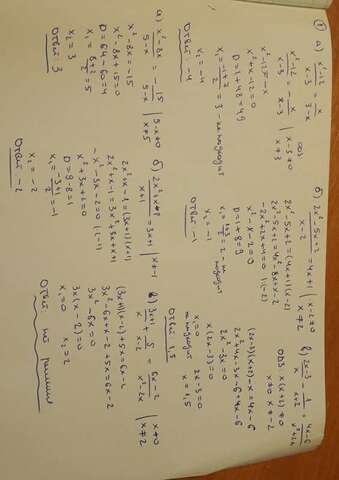 ① а) (x²-12)/(x-3) = x/(3-x)
(x²-12)/(x-3) = -x/(x-3) | x-3≠0 x≠3
x²-12=-x
x²+x-12=0
D=1+48=49
x₁ = (-1+7)/2 = 3 - не подходит
x₂=-4
Ответ: -4
б) (2x²-5x+2)/(x-2) = 4x+1 | x-2≠0 x≠2
2x²-5x+2=(4x+1)(x-2)
2x²-5x+2=4x²-8x+x-2
-2x²+2x+4=0 |:(-2)
x²-x-2=0
D=1+8=9
x₁ = (1+3)/2 = 2 не подходит
x₂=-1
Ответ -1
в) (2x-3)/x - 1/(x+2) = (4x-6)/(x²+2x)
ОДЗ x(x+2)≠0
x≠0 x≠-2
(2x-3)(x+2)-x=4x-6
2x²-3x=0
x(2x-3)=0
x₁=0 2x-3=0
не подходит x=1,5
Ответ 1,5
а) (x²-8x)/(5-x) = -15/(5-x) | 5-x≠0 x≠5
x²-8x=-15
x²-8x+15=0
D=64-60=4
x₁ = (8+2)/2 = 5
x₂=3
Ответ 3
б) = 3x+1 | x≠-1
2x²+x-1=(3x+1)(x+1)
2x²+x-1=3x²+3x+x+1
-x²-3x-2=0 |(-1)
x²+3x+2=0
D=9-8=1
x₁ = (-3+1)/2 = -1
x₂=-2
Ответ -2
в) (3x+1)/x + 5/(x-2) = (6x-2)/(x²-2x) | x≠0 x≠2
(3x+1)(x-2)+5x=6x-2
3x²-6x+x-2+5x=6x-2
3x²-6x=0
3x(x-2)=0
x₁=0 x₂=2
Ответ нет решения